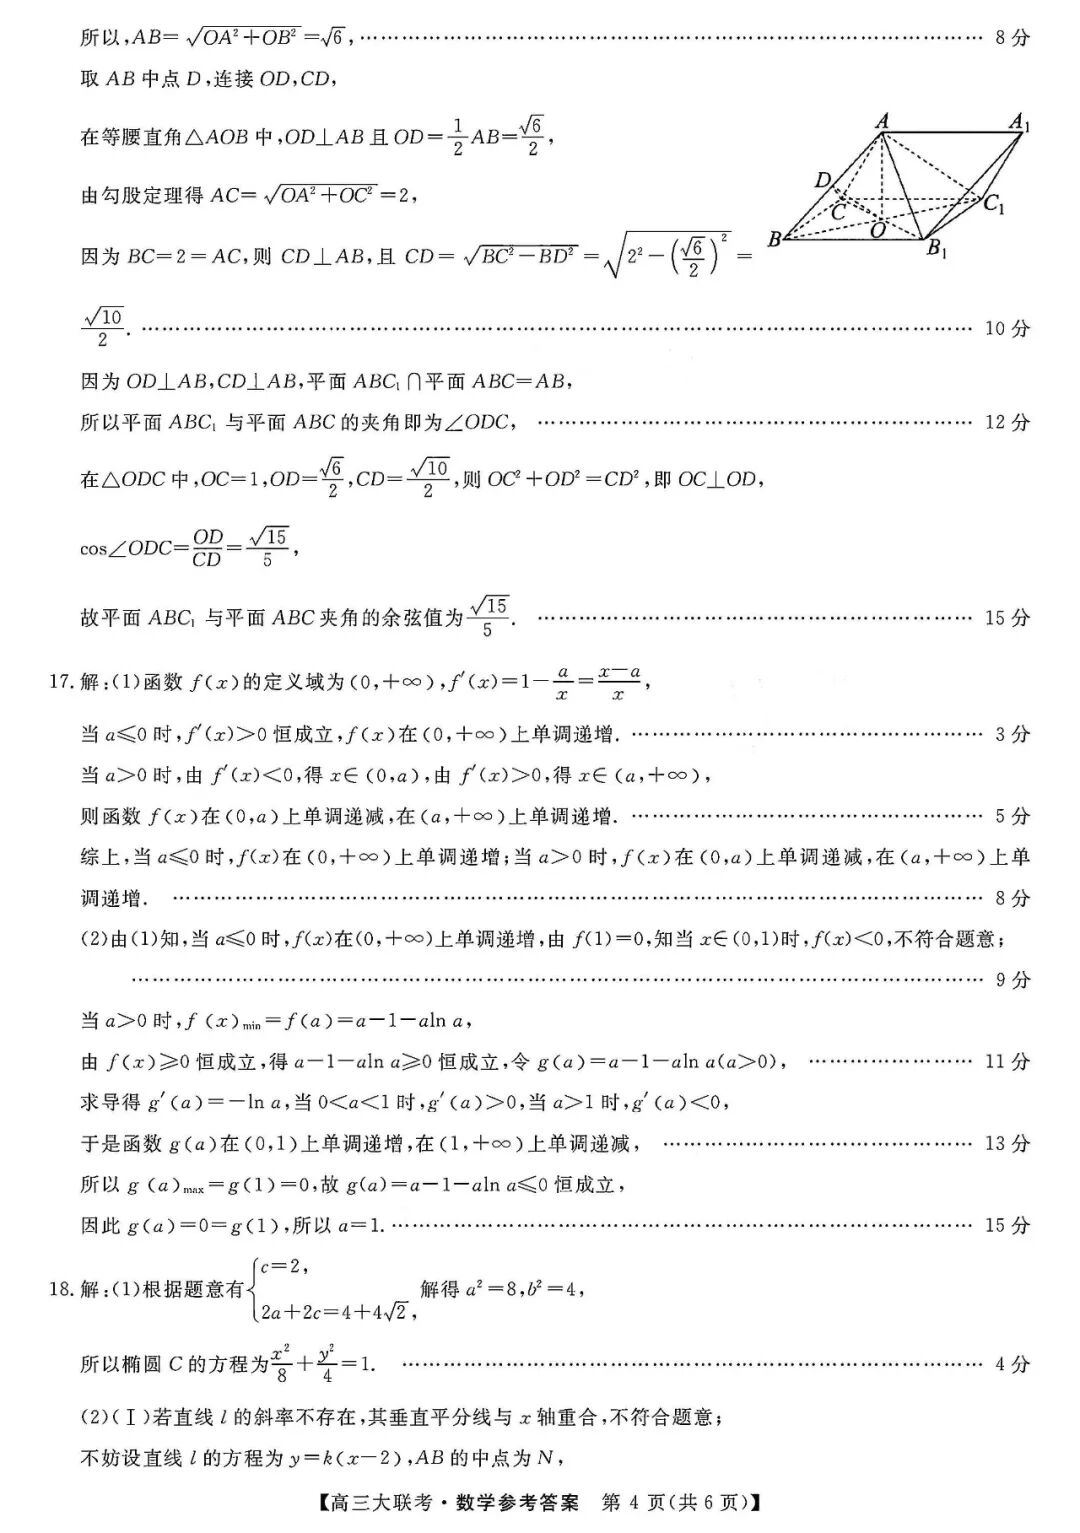 所以,AB=√(OA²+OB²)=√6,…… 8 分
取 AB 中点 D,连接 OD,CD,
在等腰直角△AOB 中,OD⊥AB 且 OD=1/2AB=√6/2,
由勾股定理得 AC=√(OA²+OC²)=2,
因为 BC=2=AC,则 CD⊥AB,且 CD=√(BC²-BD²)=√(2²-(√6/2)²)=
√10/2. …… 10 分
A
A₁
D
C
C₁
B
O
B₁
因为 OD⊥AB,CD⊥AB,平面 ABC₁∩平面 ABC=AB,
所以平面 ABC₁ 与平面 ABC 的夹角即为∠ODC, …… 12 分
在△ODC 中,OC=1,OD=√6/2,CD=√10/2,则 OC²+OD²=CD²,即 OC⊥OD,
cos∠ODC=OD/CD=√15/5,
故平面 ABC₁ 与平面 ABC 夹角的余弦值为√15/5. …… 15 分
17. 解:(1)函数 f(x)的定义域为(0,+∞),f′(x)=1-a/x=(x-a)/x,
当 a≤0 时,f′(x)>0 恒成立,f(x)在(0,+∞)上单调递增. …… 3 分
当 a>0 时,由 f′(x)<0,得 x∈(0,a),由 f′(x)>0,得 x∈(a,+∞),
则函数 f(x)在(0,a)上单调递减,在(a,+∞)上单调递增. …… 5 分
综上,当 a≤0 时,f(x)在(0,+∞)上单调递增;当 a>0 时,f(x)在(0,a)上单调递减,在(a,+∞)上单
调递增. …… 8 分
(2)由(1)知,当 a≤0 时,f(x)在(0,+∞)上单调递增,由 f(1)=0,知当 x∈(0,1)时,f(x)<0,不符合题意;
…… 9 分
当 a>0 时,f(x)min=f(a)=a-1-aln a,
由 f(x)≥0 恒成立,得 a-1-aln a≥0 恒成立,令 g(a)=a-1-aln a(a>0), …… 11 分
求导得 g′(a)=-ln a,当 0<a<1 时,g′(a)>0,当 a>1 时,g′(a)<0,
于是函数 g(a)在(0,1)上单调递增,在(1,+∞)上单调递减, …… 13 分
所以 g(a)max=g(1)=0,故 g(a)=a-1-aln a≤0 恒成立,
因此 g(a)=0=g(1),所以 a=1. …… 15 分
18. 解:(1)根据题意有{c=2, 2a+2c=4+4√2, 解得 a²=8,b²=4,
所以椭圆 C 的方程为x²/8+y²/4=1. …… 4 分
(2)(Ⅰ)若直线 l 的斜率不存在,其垂直平分线与 x 轴重合,不符合题意;
不妨设直线 l 的方程为 y=k(x-2),AB 的中点为 N,
【高三大联考·数学参考答案 第 4 页(共 6 页)】